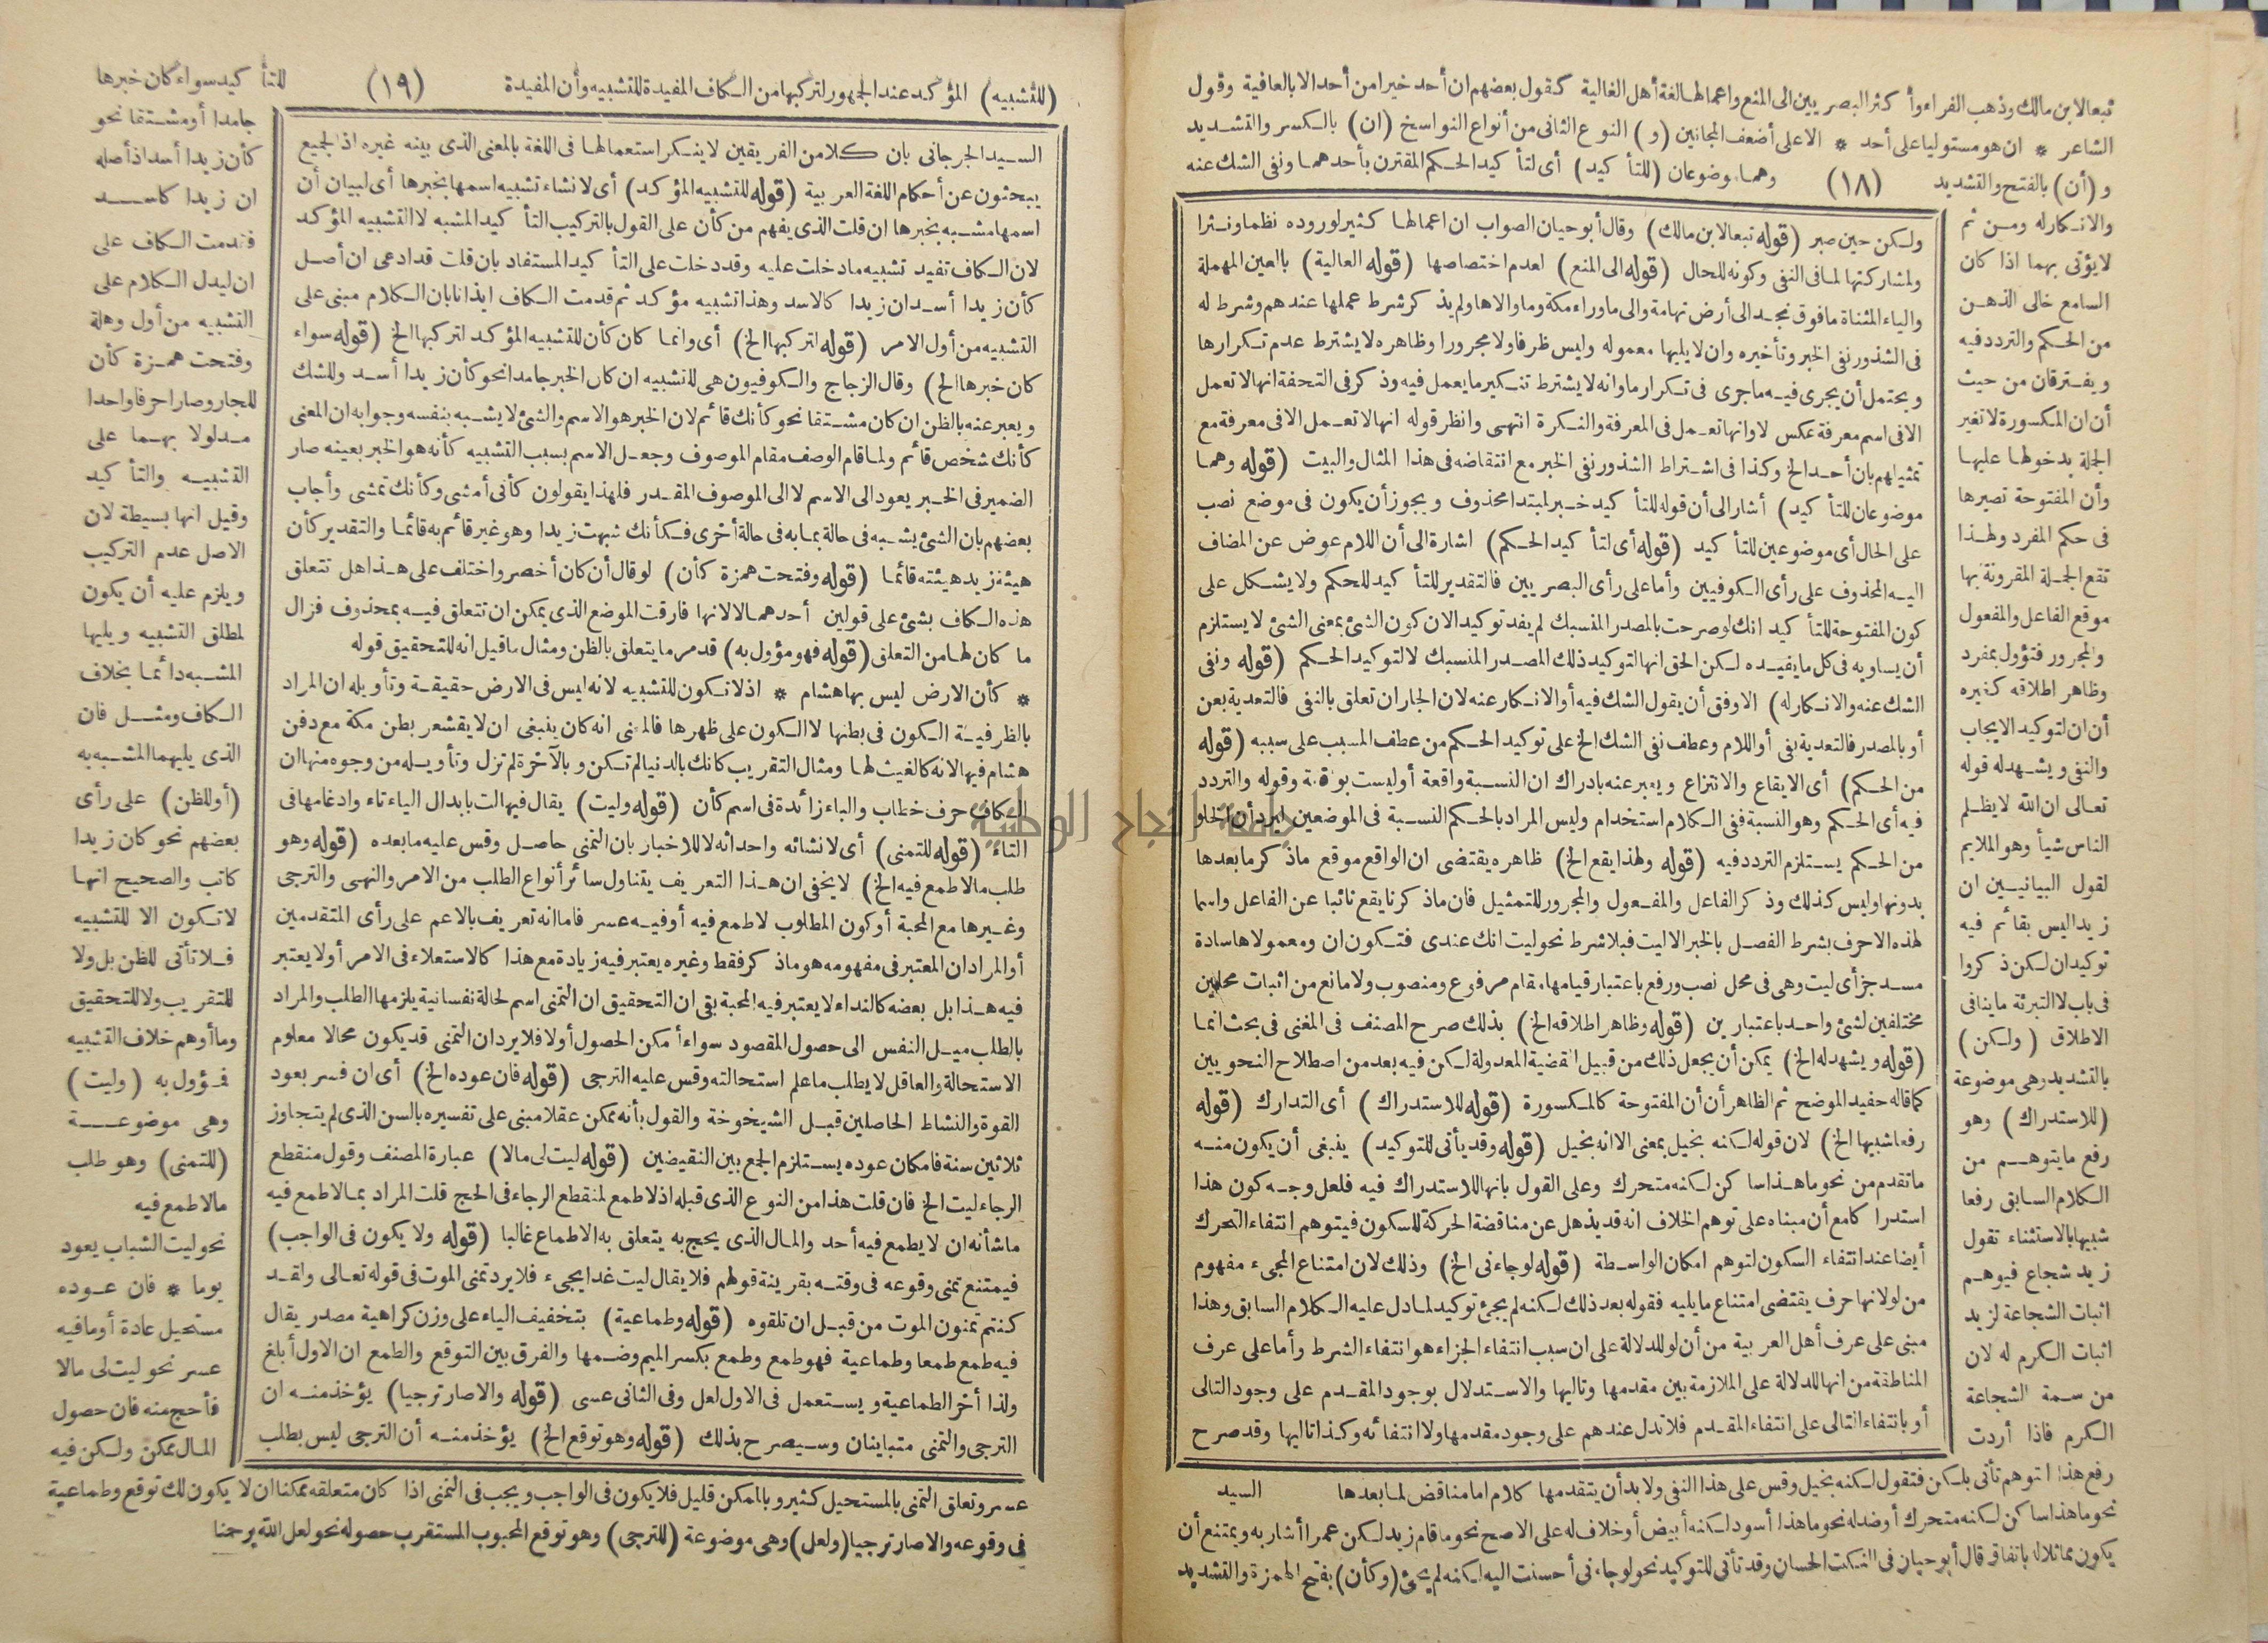 تبعا لابن مالك وذهب الفراء وأكثر البصريين الى المنع واعمالها لغة أهل الغالية كقول بعضهم ان أحد خيرا من أحد الا بالعافية وقول
الشاعر * ان هو مستوليا على أحد * الا على أضعف المجانين (و) النوع الثانى من أنواع النواسخ (ان) بالكسر والتشديد
و (أن) بالفتح والتشديد (١٨) وهما موضوعان (للتأكيد) أى لتأكيد الحكم المقترن بأحدهما ونفى الشك عنه
والانكار له ومن ثم
لا يؤتى بهما اذا كان
السامع خالى الذهن
من الحكم والتردد فيه
ويفترقان من حيث
أن ان المكسورة لا تغير
الجملة بدخولها عليها
وأن المفتوحة تصيرها
فى حكم المفرد ولهذا
تقع الجملة المقرونة بها
موقع الفاعل والمفعول
والمجرور فتؤول بمفرد
وظاهر اطلاقه كغيره
أن ان لتوكيد الايجاب
والنفى ويشهد له قوله
تعالى ان الله لا يظلم
الناس شيأ وهو الملايم
لقول البيانيين ان
زيدا ليس بقائم فيه
توكيدان لكن ذكروا
فى باب لا التبرئة ما ينافى
الاطلاق (ولكن)
بالتشديد وهى موضوعة
(للاستدراك) وهو
رفع ما يتوهم من
الكلام السابق رفعا
شبيها بالاستثناء تقول
زيد شجاع فيوهم
اثبات الشجاعة لزيد
اثبات الكرم له لان
من سمة الشجاعة
الكرم فاذا أردت
رفع هذا التوهم تأتى بلكن فتقول لكنه بخيل وقس على هذا النفى ولا بد أن يتقدمها كلام اما مناقض لما بعدها
نحو ما هذا ساكن لكنه متحرك أو ضد له نحو ما هذا أسود لكنه أبيض أو خلاف له على الاصح نحو ما قام زيد لكن عمرا أشار به ويمتنع أن
يكون مماثلا له باتفاق قال أبو حيان فى النكت الحسان وقد تأتى للتوكيد نحو لو جاءنى أحسنت اليه لكنه لم يجئ (وكأن) بفتح الهمزة والتشديد
ولكن حين صبر (قوله تبعا لابن مالك) وقال أبو حيان الصواب ان اعمالها كثير لوروده نظما ونثرا
ولمشاركتها لما فى النفى وكونه للحال (قوله الى المنع) لعدم اختصاصها (قوله العالية) بالعين المهملة
والياء المثناة ما فوق نجد الى أرض تهامة والى ما وراء مكة وما والاها ولم يذكر شرط عملها عندهم وشرط له
فى الشذور نفى الخبر وتأخيره وان لا يليها معموله وليس ظرفا ولا مجرورا وظاهره لا يشترط عدم تكرارها
ويحتمل أن يجرى فيه ما جرى فى تكرار ما وانه لا يشترط تنكير ما يعمل فيه وذكر فى التحفة انها لا تعمل
الا فى اسم معرفة عكس لا وانها تعمل فى المعرفة والنكرة انتهى وانظر قوله انها لا تعمل الا فى معرفة مع
تمثيلهم بان أحد الخ وكذا فى اشتراط الشذور نفى الخبر مع انتقاضه فى هذا المثال والبيت (قوله وهما
موضوعان للتأكيد) أشار الى أن قوله للتأكيد خبر لمبتدا محذوف ويجوز أن يكون فى موضع نصب
على الحال أى موضوعين للتأكيد (قوله أى لتأكيد الحكم) اشارة الى أن اللام عوض عن المضاف
اليه المحذوف على رأى الكوفيين وأما على رأى البصريين فالتقدير للتأكيد للحكم ولا يشكل على
كون المفتوحة للتأكيد انك لو صرحت بالمصدر المنسبك لم يفد توكيدا لان كون الشئ بمعنى الشئ لا يستلزم
أن يساويه فى كل ما يفيده لكن الحق انها لتوكيد ذلك المصدر المنسبك لا لتوكيد الحكم (قوله ونفى
الشك عنه والانكار له) الاوفق أن يقول الشك فيه أو الانكار عنه لان الجار ان تعلق بالنفى فالتعدية بعن
أو بالمصدر فالتعدية بفى أو اللام وعطف نفى الشك الخ على توكيد الحكم من عطف المسبب على سببه (قوله
من الحكم) أى الايقاع والانتزاع ويعبر عنه بادراك ان النسبة واقعة أو ليست بواقعة وقوله والتردد
فيه أى الحكم وهو النسبة ففى الكلام استخدام وليس المراد بالحكم النسبة فى الموضعين ليرد أن الخلو
من الحكم يستلزم التردد فيه (قوله ولهذا يقع الخ) ظاهره يقتضى ان الواقع موقع ما ذكر ما بعدها
بدونها وليس كذلك وذكر الفاعل والمفعول والمجرور للتمثيل فان ما ذكرنا يقع نائبا عن الفاعل واسما
لهذه الاحرف بشرط الفصل بالخبر الا ليت فبلا شرط نحو ليت انك عندى فتكون ان ومعمولاها سادة
مسد جزأى ليت وهى فى محل نصب ورفع باعتبار قيامها مقام مرفوع ومنصوب ولا مانع من اثبات محلين
مختلفين لشئ واحد باعتبارين (قوله وظاهر اطلاقه الخ) بذلك صرح المصنف فى المغنى فى بحث انما
(قوله ويشهد له الخ) يمكن أن يجعل ذلك من قبيل القضية المعدولة لكن فيه بعد من اصطلاح النحويين
كما قاله حفيد الموضح ثم الظاهر أن أن المفتوحة كالمكسورة (قوله للاستدراك) أى التدارك (قوله
رفعا شبيها الخ) لان قوله لكنه بخيل بمعنى الا انه بخيل (قوله وقد يأتى للتوكيد) ينبغى أن يكون منه
ما تقدم من نحو ما هذا ساكن لكنه متحرك وعلى القول بانها للاستدراك فيه فلعل وجه كون هذا
استدراكا مع أن مبناه على توهم الخلاف انه قد يذهل عن مناقضة الحركة للسكون فيتوهم انتفاء التحرك
أيضا عند انتفاء السكون لتوهم امكان الواسطة (قوله لو جاءنى الخ) وذلك لان امتناع المجىء مفهوم
من لو لانها حرف يقتضى امتناع ما يليه فقوله بعد ذلك لكنه لم يجئ توكيد لما دل عليه الكلام السابق وهذا
مبنى على عرف أهل العربية من أن لو للدلالة على ان سبب انتفاء الجزاء هو انتفاء الشرط وأما على عرف
المناطقة من انها للدلالة على الملازمة بين مقدمها وتاليها والاستدلال بوجود المقدم على وجود التالى
أو بانتفاء التالى على انتفاء المقدم فلا تدل عندهم على وجود مقدمها ولا انتفائه وكذا تاليها وقد صرح
السيد
(للتشبيه) المؤكد عند الجمهور لتركبها من الكاف المفيدة للتشبيه وأن المفيدة (١٩) للتأكيد سواء كان خبرها
جامدا أو مشتقا نحو
كأن زيدا أسد اذ أصله
ان زيدا كاسد
فقدمت الكاف على
ان ليدل الكلام على
التشبيه من أول وهلة
وفتحت همزة كأن
للجار وصارا حرفا واحدا
مدلولا بهما على
التشبيه والتأكيد
وقيل انها بسيطة لان
الاصل عدم التركيب
ويلزم عليه أن يكون
لمطلق التشبيه ويليها
المشبه دائما بخلاف
الكاف ومثل فان
الذى يليهما المشبه به
(أو للظن) على رأى
بعضهم نحو كان زيدا
كاتب والصحيح انها
لا تكون الا للتشبيه
فلا تأتى للظن بل ولا
للتقريب ولا للتحقيق
وما أوهم خلاف التشبيه
فمؤول به (وليت)
وهى موضوعة
(للتمنى) وهو طلب
ما لا طمع فيه
نحو ليت الشباب يعود
يوما * فان عوده
مستحيل عادة أو ما فيه
عسر نحو ليت لى مالا
فأحج منه فان حصول
المال ممكن ولكن فيه
عسر وتعلق التمنى بالمستحيل كثير وبالممكن قليل فلا يكون فى الواجب ويجب فى التمنى اذا كان متعلقه ممكنا ان لا يكون لك توقع وطماعية
فى وقوعه والا صار ترجيا (ولعل) وهى موضوعة (للترجى) وهو توقع المحبوب المستقرب حصوله نحو لعل الله يرحمنا
السيد الجرجانى بان كلا من الفريقين لا ينكر استعمالها فى اللغة بالمعنى الذى بينه غيره اذ الجميع
يبحثون عن أحكام اللغة العربية (قوله للتشبيه المؤكد) أى لانشاء تشبيه اسمها بخبرها أى لبيان أن
اسمها مشبه بخبرها ان قلت الذى يفهم من كأن على القول بالتركيب التأكيد المشبه لا التشبيه المؤكد
لان الكاف تفيد تشبيه ما دخلت عليه وقد دخلت على التأكيد المستفاد بان قلت قد ادعى ان أصل
كأن زيدا أسد ان زيدا كالاسد وهذا تشبيه مؤكد ثم قدمت الكاف ايذانا بان الكلام مبنى على
التشبيه من أول الامر (قوله لتركبها الخ) أى وانما كان كأن للتشبيه المؤكد لتركبها الخ (قوله سواء
كان خبرها الخ) وقال الزجاج والكوفيون هى للتشبيه ان كان الخبر جامدا نحو كأن زيدا أسد وللشك
ويعبر عنه بالظن ان كان مشتقا نحو كأنك قائم لان الخبر هو الاسم والشئ لا يشبه بنفسه وجوابه ان المعنى
كأنك شخص قائم ولما قام الوصف مقام الموصوف وجعل الاسم بسبب التشبيه كأنه هو الخبر بعينه صار
الضمير فى الخبر يعود الى الاسم لا الى الموصوف المقدر فلهذا يقولون كأنى أمشى وكأنك تمشى وأجاب
بعضهم بان الشئ يشبه فى حالة بما به فى حالة أخرى فكأنك شبهت زيدا وهو غير قائم به قائما والتقدير كأن
هيئة زيد هيئته قائما (قوله وفتحت همزة كأن) لو قال أن كان أخصر واختلف على هذا هل تتعلق
هذه الكاف بشئ على قولين أحدهما لا لانها فارقت الموضع الذى يمكن ان تتعلق فيه بمحذوف فزال
ما كان لها من التعلق (قوله فهو مؤول به) قد مر ما يتعلق بالظن ومثال ما قيل انه للتحقيق قوله
* كأن الارض ليس بها هشام * اذ لا تكون للتشبيه لانه ليس فى الارض حقيقة وتأويله ان المراد
بالظرفية الكون فى بطنها لا الكون على ظهرها فالمعنى انه كان ينبغى ان لا يقشعر بطن مكة مع دفن
هشام فيها لانه كالغيث لها ومثال التقريب كانك بالدنيا لم تكن وبالآخرة لم تزل وتأويله من وجوه منها ان
الكاف حرف خطاب والباء زائدة فى اسم كأن (قوله وليت) يقال فيها لت بابدال الياء تاء وادغامها فى
التاء (قوله للتمنى) أى لانشائه واحداثه لا للاخبار بان التمنى حاصل وقس عليه ما بعده (قوله وهو
طلب ما لا طمع فيه الخ) لا يخفى ان هذا التعريف يتناول سائر أنواع الطلب من الامر والنهى والترجى
وغيرها مع المحبة أو كون المطلوب لا طمع فيه أو فيه عسر فاما انه تعريف بالاعم على رأى المتقدمين
أو المراد ان المعتبر فى مفهومه هو ما ذكر فقط وغيره يعتبر فيه زيادة مع هذا كالاستعلاء فى الامر أو لا يعتبر
فيه هذا بل بعضه كالنداء لا يعتبر فيه المحبة بقى ان التحقيق ان التمنى اسم لحالة نفسانية يلزمها الطلب والمراد
بالطلب ميل النفس الى حصول المقصود سواء أمكن الحصول أو لا فلا يرد ان التمنى قد يكون محالا معلوم
الاستحالة والعاقل لا يطلب ما علم استحالته وقس عليه الترجى (قوله فان عوده الخ) أى ان فسر بعود
القوة والنشاط الحاصلين قبل الشيخوخة والقول بأنه ممكن عقلا مبنى على تفسيره بالسن الذى لم يتجاوز
ثلاثين سنة فامكان عوده يستلزم الجمع بين النقيضين (قوله ليت لى مالا) عبارة المصنف وقول منقطع
الرجاء ليت الخ فان قلت هذا من النوع الذى قبله اذ لا طمع لمنقطع الرجاء فى الحج قلت المراد بما لا طمع فيه
ما شأنه ان لا يطمع فيه أحد والمال الذى يحج به يتعلق به الاطماع غالبا (قوله ولا يكون فى الواجب)
فيمتنع تمنى وقوعه فى وقته بقرينة قولهم فلا يقال ليت غدا يجىء فلا يرد تمنى الموت فى قوله تعالى ولقد
كنتم تمنون الموت من قبل ان تلقوه (قوله وطماعية) بتخفيف الياء على وزن كراهية مصدر يقال
فيه طمع طمعا وطماعية فهو طمع وطمع بكسر الميم وضمها والفرق بين التوقع والطمع ان الاول أبلغ
ولذا أخر الطماعية ويستعمل فى الاول لعل وفى الثانى عسى (قوله والا صار ترجيا) يؤخذ منه ان
الترجى والتمنى متباينان وسيصرح بذلك (قوله وهو توقع الخ) يؤخذ منه أن الترجى ليس بطلب
جامعة النجاح الوطنية